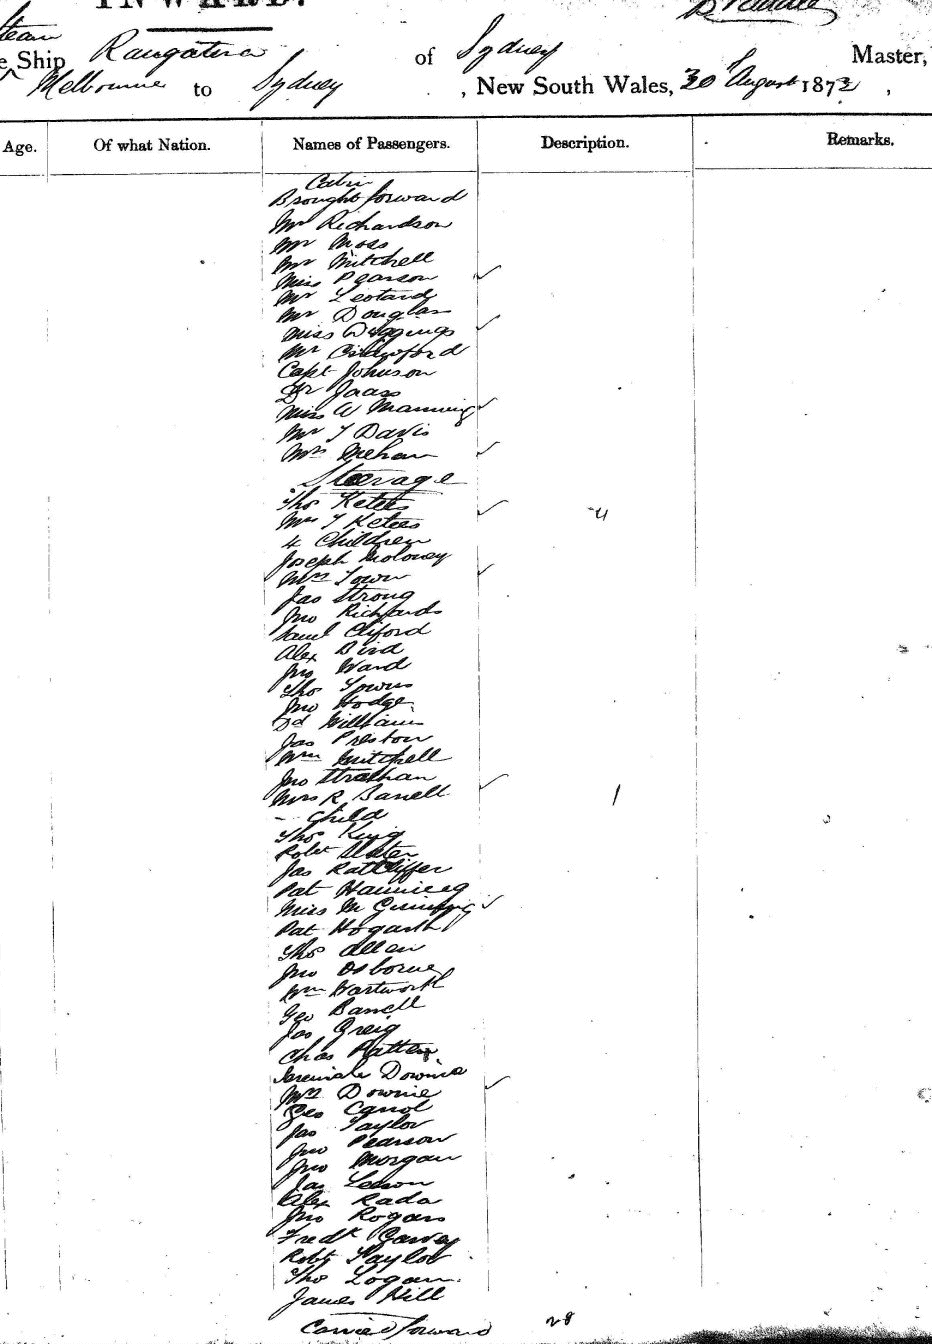 INWARD.
Steam
e Ship Rangatira of Sydney Master,
Melbourne to Sydney, New South Wales, 30 August 1873,
Age. Of what Nation. Names of Passengers. Description. Remarks.
Cabin
Brought forward
Mr Richardson
Mr Moss
Mr Mitchell
Miss Pearson
Mr Leotard
Mr Douglas
Miss Diggings
Mr Crawford
Capt Johnson
Dr Jaass
Miss A Manning
Mr T Davis
Mrs Mehan
Steerage
Thos Ketees
Mrs T Ketees 4
4 Children
Joseph Moloney
Mrs Town
Jas Strong
Jno Richards
Saml Cliford
Alex Bird
Jno Ward
Thos Towns
Jno Hodge
Ed Williams
Jas Preston
Wm Mitchell
Jno Strathan
Mrs R Barrell 1
- Child
Thos King
Robt Slater
Jas Ratcliffer
Pat
Miss M
Pat Hogarth
Thos Allen
Jno Osborne
Wm Wartworth
Geo Barrell
Jas Greig
Chas Patten
Jeremiah Downie
Mrs Downie
Geo Carrol
Jas Taylor
Jno Pearson
Jno Morgan
Jas Leeson
Alex Rada
Jno Rogans
Fredk Garvey
Robt Taylor
Tho Logan
James Hill
Carried forward 28